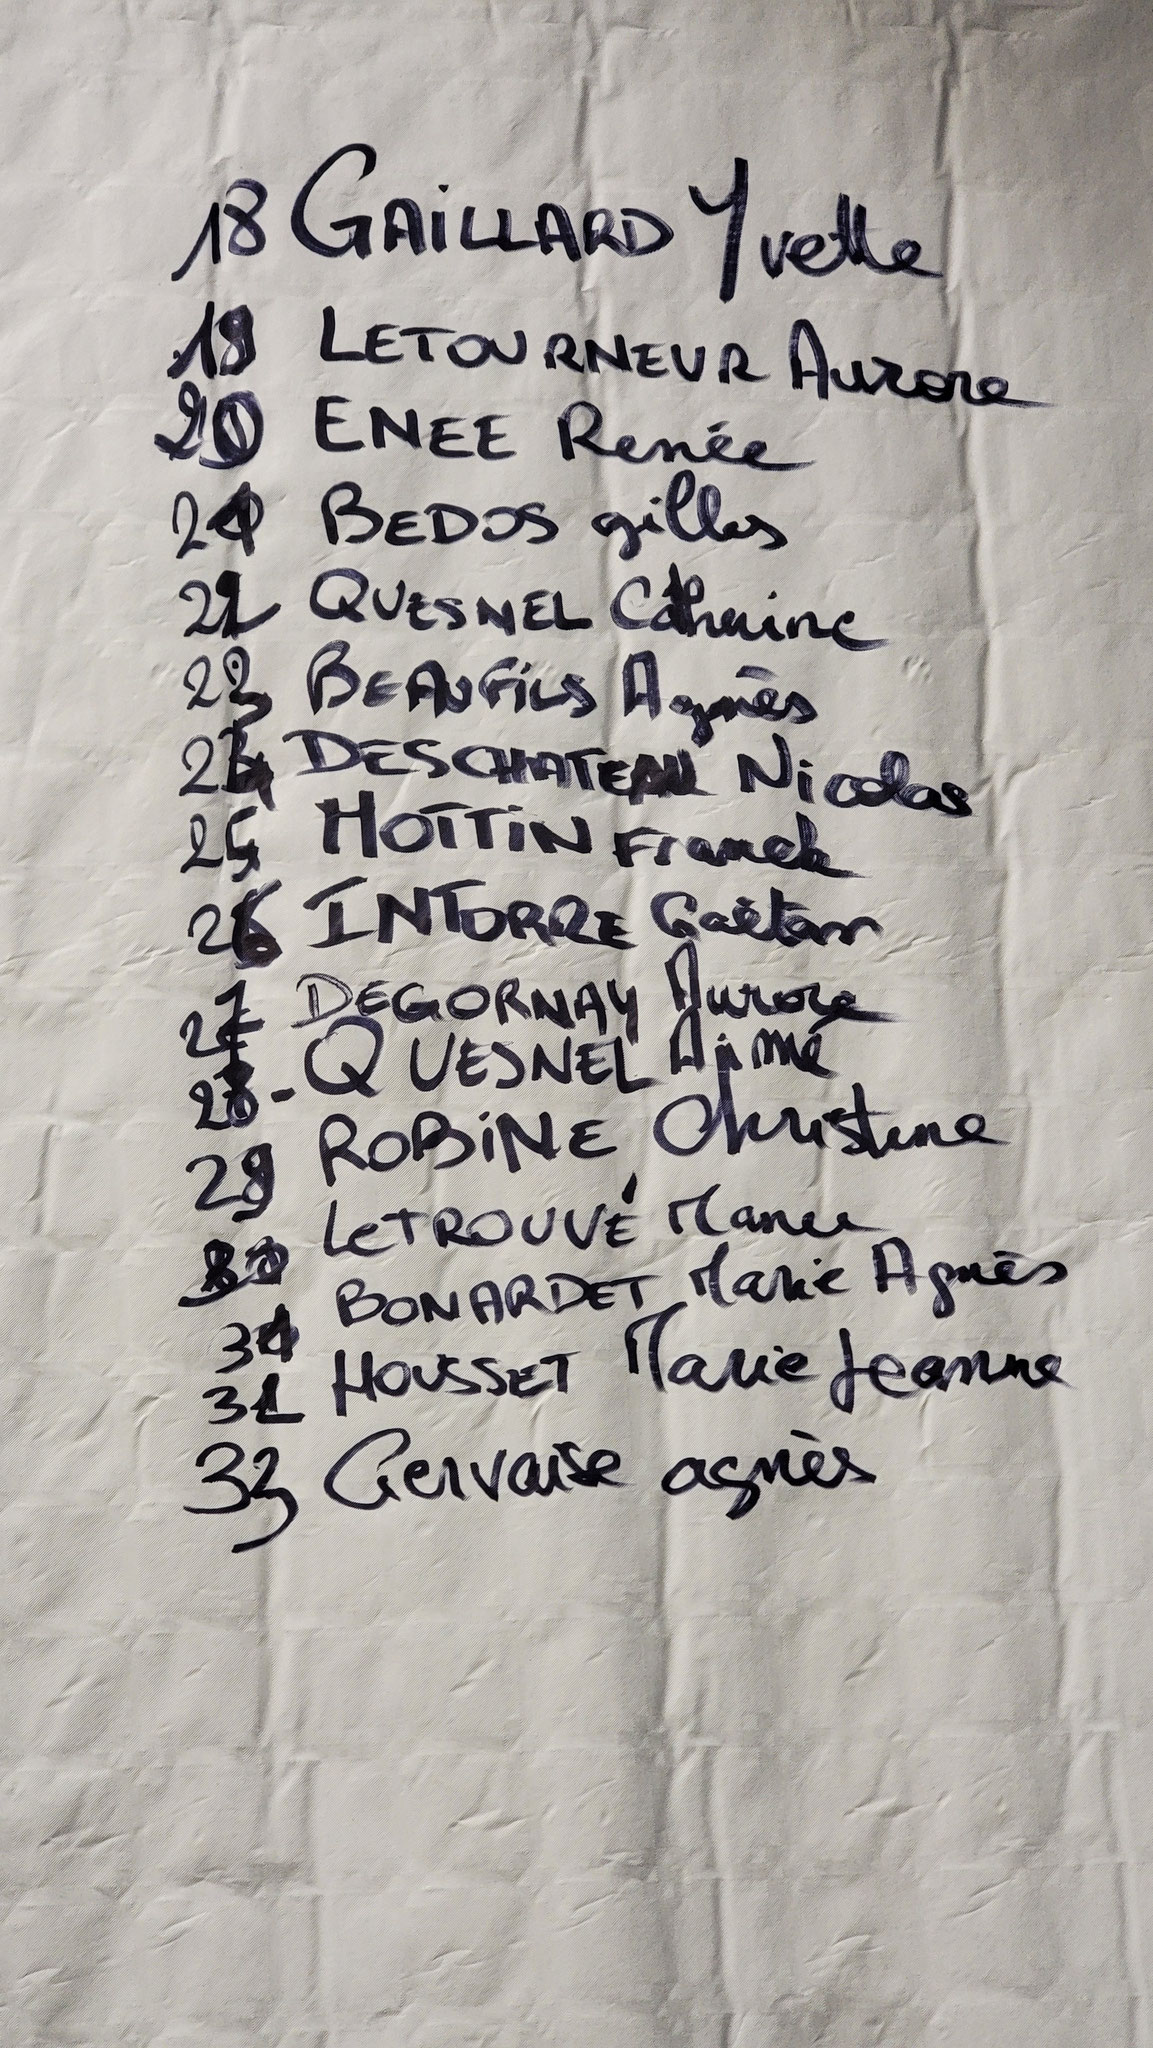 18 GAILLARD Yvette
19 LETOURNEUR Aurore
20 ENEE Renée
21 BEDOS gilles
22 QUESNEL Catherine
23 BEAUFILS Agnès
24 DESCHATEAU Nicolas
25 HOTTIN Franck
26 INTORRE Gaëtan
27 DEGORNAY Aurore
28- QUESNEL Aimé
29 ROBINE Christine
30 LETROUVÉ Marie
31 BONARDET Marie Agnès
32 HOUSSET Marie Jeanne
33 Gervaise agnès